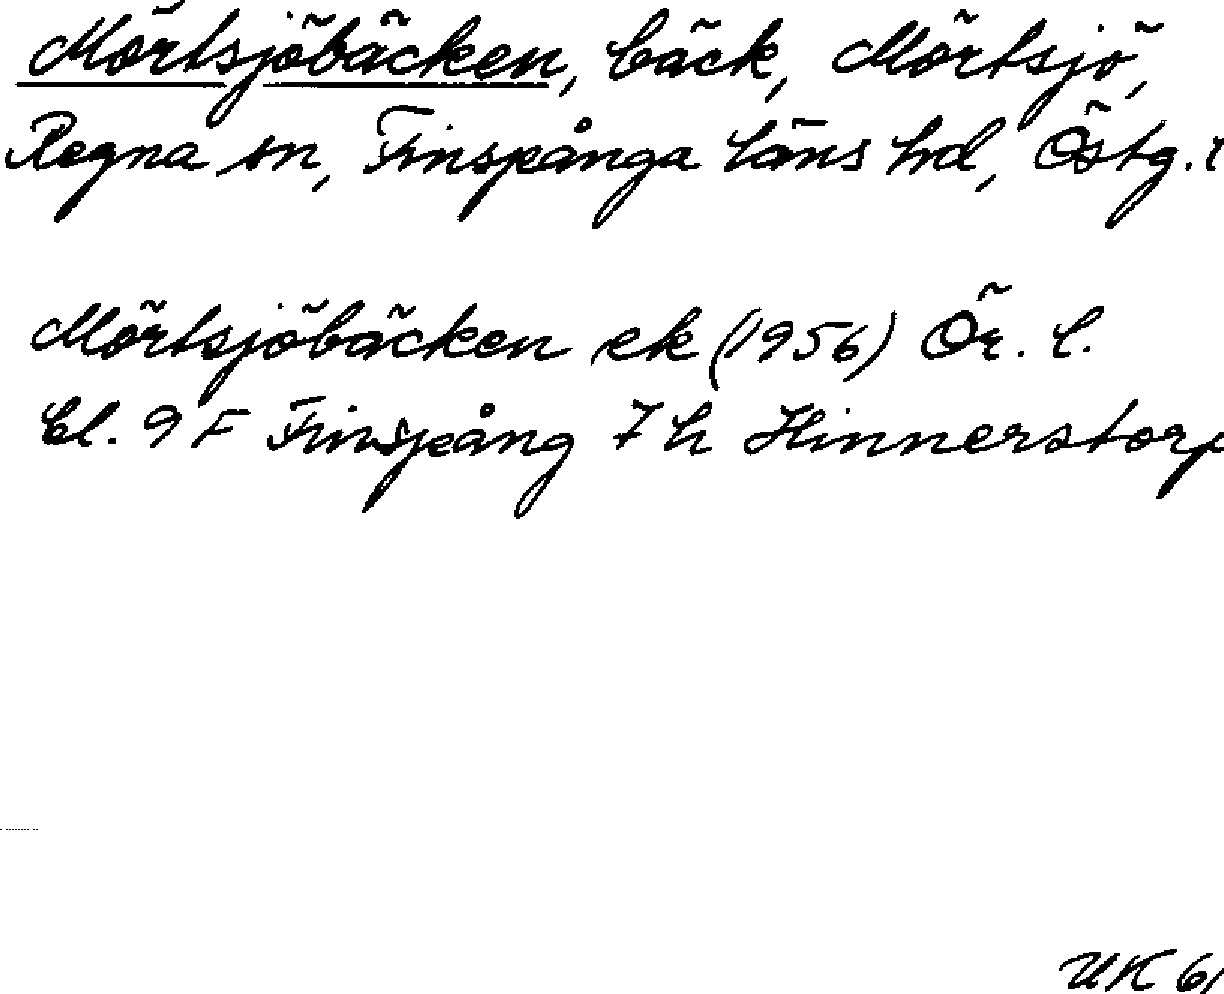 Mörtsjöbäcken, bäck, Mörtsjö,
Regna sn, Finspånga läns hd, Östg. l
Mörtsjöbäcken ek (1956) Ör. l.
bl. 9 F Finspång 7 h Hinnerstorp
UK 61